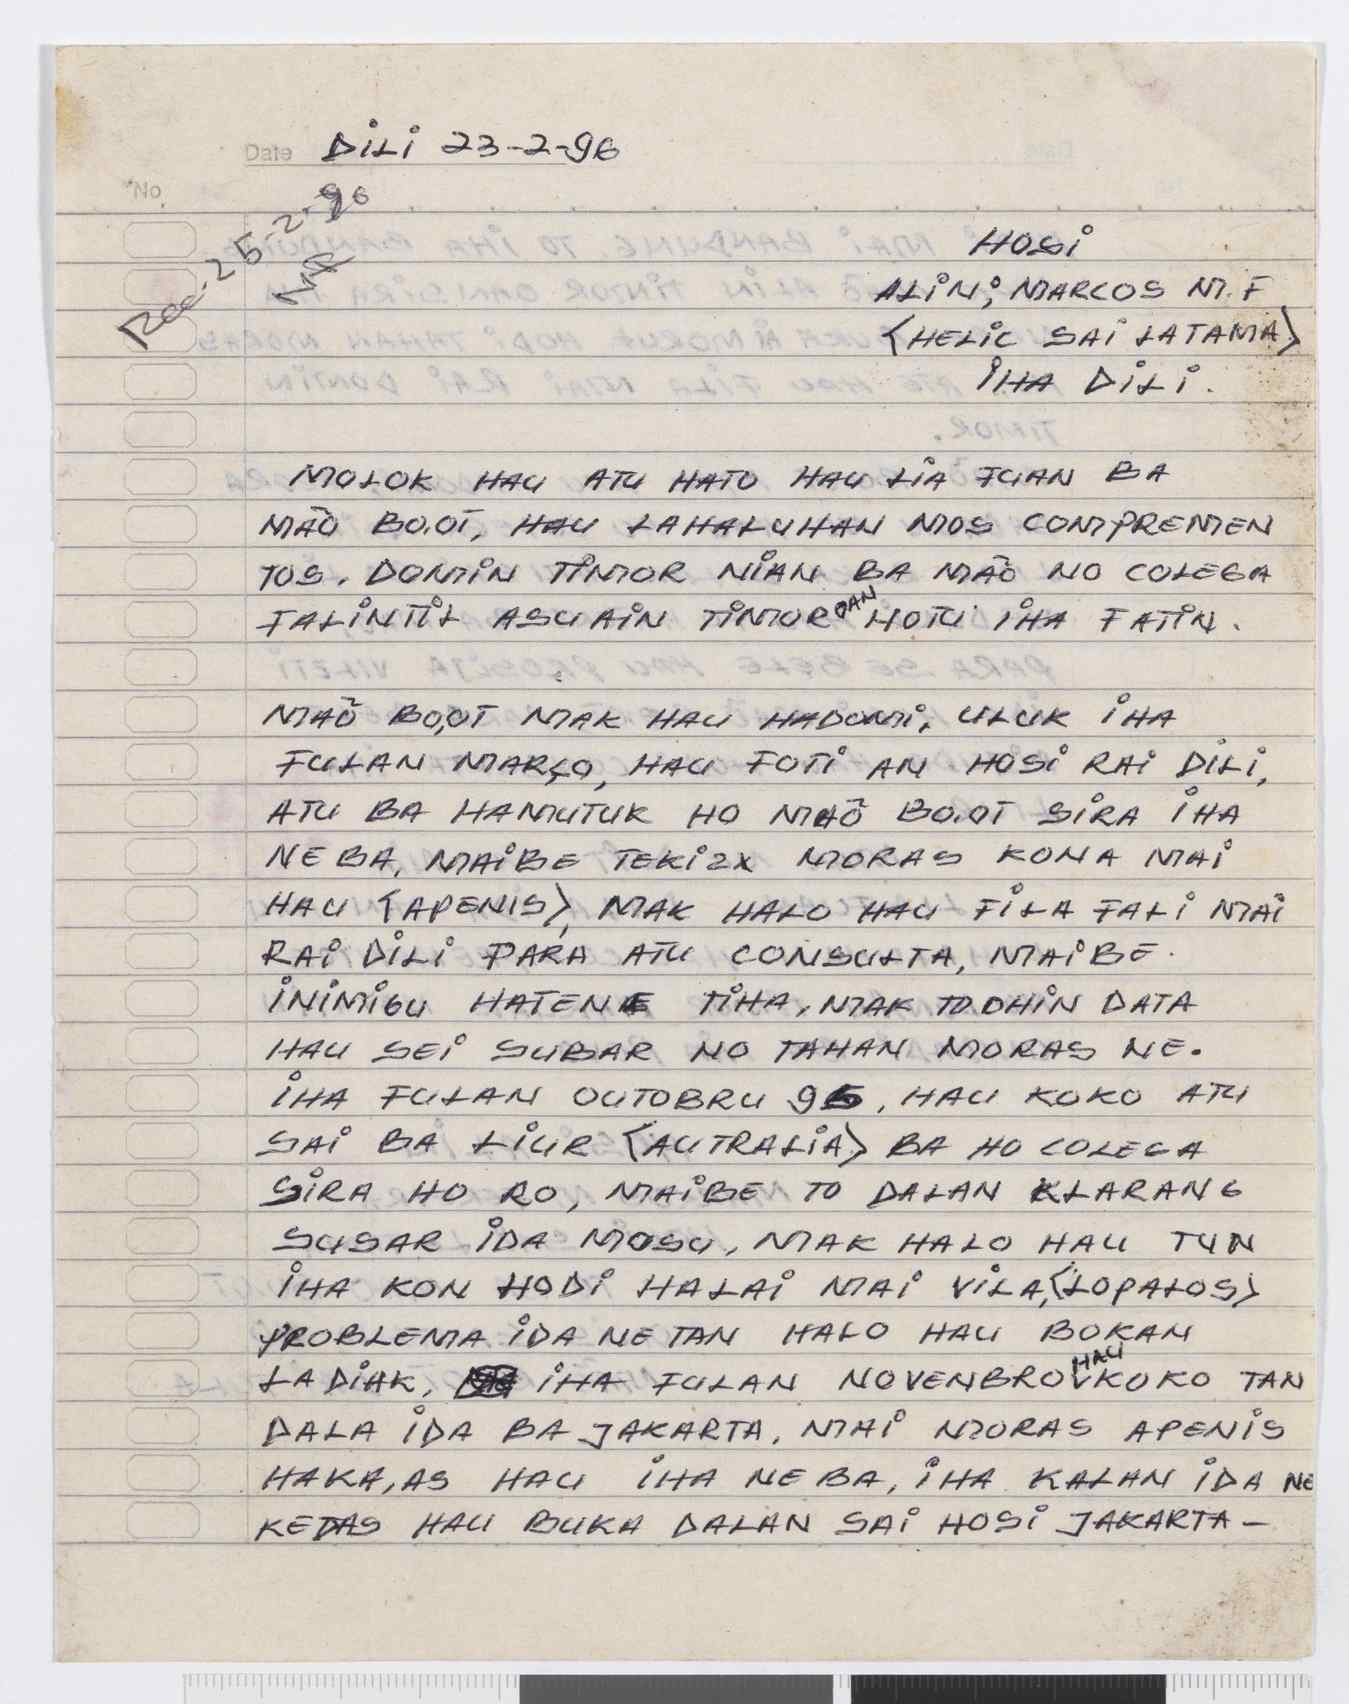 Date DILI 23-2-96
No.
Rec. 25-2-96
HOSI
ALIN; MARCOS M.F
(HELIC SAI LATAMA)
IHA DILI.
MOLOK HAU ATU HATO HAU LIA FUAN BA
MAÕ BO.OT, HAU LAHALUHAN MOS COMPREMEN
TOS. DOMIN TIMOR NIAN BA MAÕ NO COLEGA
FALINTIL ASUAIN TIMOR OAN HOTU IHA FATIN.
MAÕ BO,OT MAK HAU HADOMI, ULUK IHA
FULAN MARÇO, HAU FOTI AN HOSI RAI DILI,
ATU BA HAMUTUK HO MAÕ BO.OT SIRA IHA
NEBA, MAIBE TEKI2X MORAS KONA MAI
HAU (APENIS), MAK HALO HAU FILA FALI MAI
RAI DILI PARA ATU CONSULTA, MAIBE.
INIMIGU HATENE TIHA, MAK TO OHIN DATA
HAU SEI SUBAR NO TAHAN MORAS NE.
IHA FULAN OUTOBRU 95, HAU KOKO ATU
SAI BA LIUR (AUTRALIA) BA HO COLEGA
SIRA HO RO, MAIBE TO DALAN KLARANG
SUSAR IDA MOSU, MAK HALO HAU TUN
IHA KON HODI HALAI MAI VILA, (LOPALOS)
PROBLEMA IDA NE TAN HALO HAU BOKAN
LADIAK, IHA FULAN NOVENBRO HAU KOKO TAN
DALA IDA BA JAKARTA, MAI MORAS APENIS
HAKA,AS HAU IHA NEBA, IHA KALAN IDA NE
KEDAS HAU BUKA DALAN SAI HOSI JAKARTA-